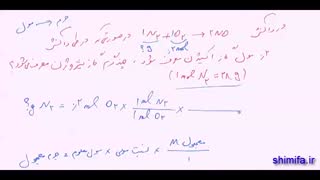 جرم ← مول
در واکنش 1N₂ + 1O₂ → 2NO در صورتیکه در طی واکنش
?g ۰٫۲mol
۰٫۲ مول گاز اکسیژن مصرف شود، چند گرم گاز نیتروژن مصرف می‌شود؟
(1mol N₂ = 28g)
?g N₂ = ۰٫۲ mol O₂ × 1mol N₂ / 1mol O₂ ×
جرم مجهول = مول معلوم × نسبت مولی × M مجهول / 1
shimifa.ir